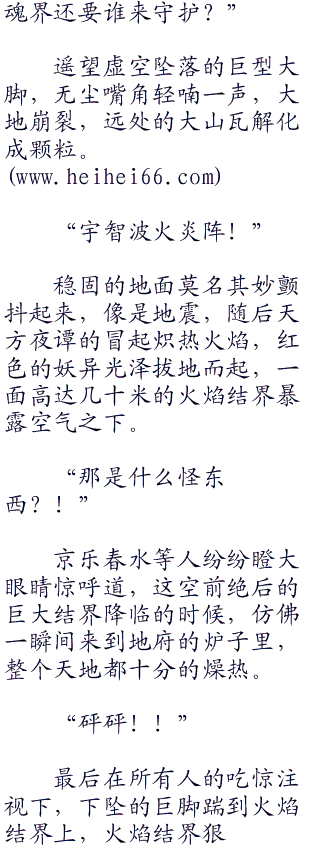 魂界还要谁来守护？”
遥望虚空坠落的巨型大
脚，无尘嘴角轻喃一声，大
地崩裂，远处的大山瓦解化
成颗粒。
(www.heihei66.com)
“宇智波火炎阵！”
稳固的地面莫名其妙颤
抖起来，像是地震，随后天
方夜谭的冒起炽热火焰，红
色的妖异光泽拔地而起，一
面高达几十米的火焰结界暴
露空气之下。
“那是什么怪东
西？！”
京乐春水等人纷纷瞪大
眼睛惊呼道，这空前绝后的
巨大结界降临的时候，仿佛
一瞬间来到地府的炉子里，
整个天地都十分的燥热。
“砰砰！！”
最后在所有人的吃惊注
视下，下坠的巨脚踹到火焰
结界上，火焰结界狠